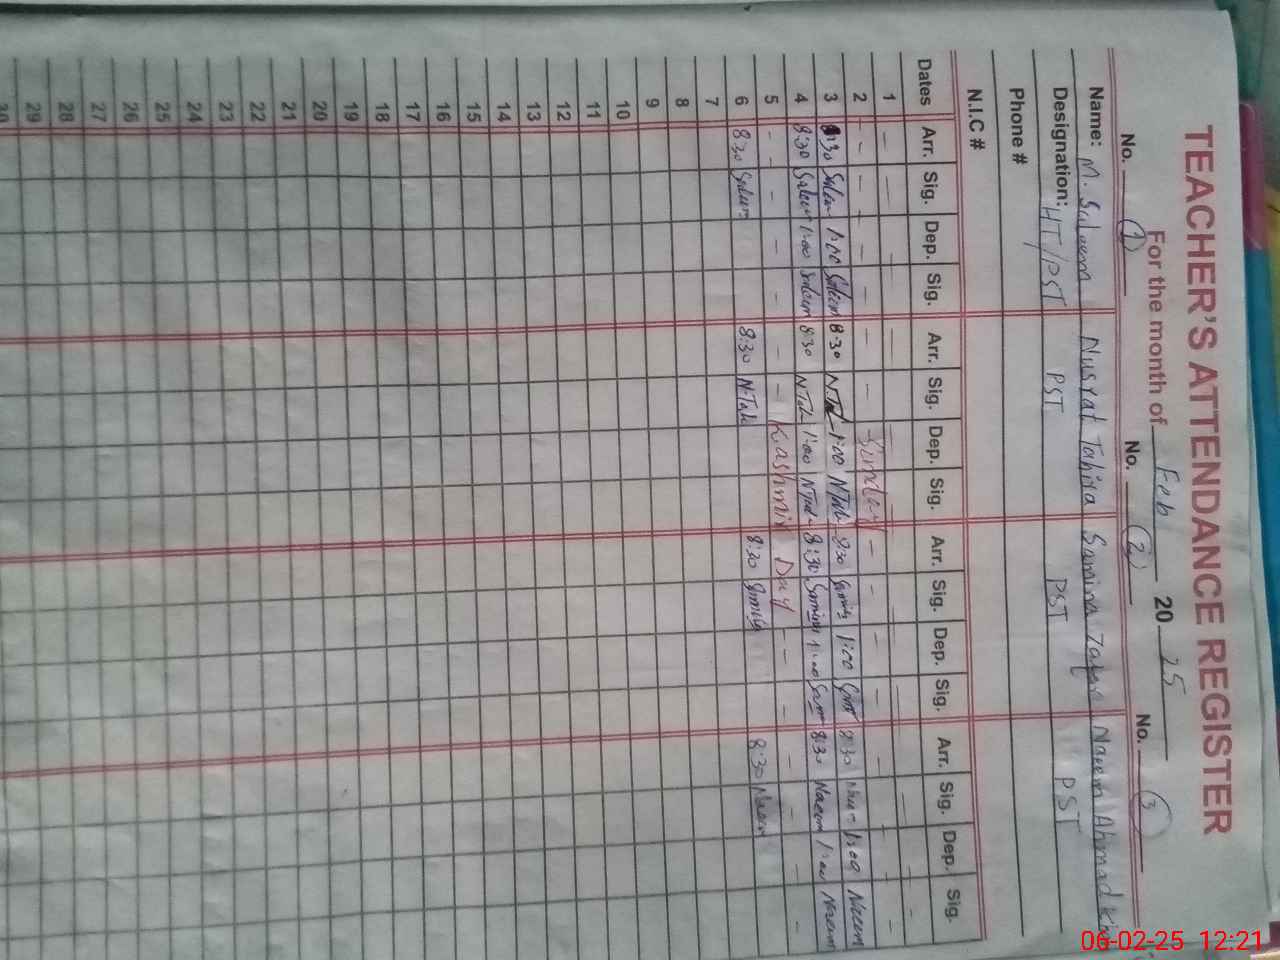 TEACHER'S ATTENDANCE REGISTER
For the month of Feb 2025
No. 1 No. 2 No. 3
Name: M. Saleem Nusrat Tahira Samina Naeem Ahmad
Designation: HT/PST PST PST PST
Phone #
N.I.C #
Dates Arr. Sig. Dep. Sig. Arr. Sig. Dep. Sig. Arr. Sig. Dep. Sig. Arr. Sig. Dep. Sig.
1 - -
2 - - - - - - Sunday - - - - - -
3 8:30 Saleem 1:00 Saleem 8:30 N.Tah 1:00 N.Tah 8:30 1:00 8:30 1:00 Naeem
4 8:30 Saleem 1:00 Saleem 8:30 N.Tah 1:00 N.Tah 8:30 Samina 1:00 Sam 8:30 Naeem 1:00 Naeem
5 - - - - - - Kashmir Day - - - - - -
6 8:30 Saleem 8:30 N.Tah 8:30 Samina 8:30 Naeem
7
8
9
10
11
12
13
14
15
16
17
18
19
20
21
22
23
24
25
26
27
28
29
30
06-02-25 12:21